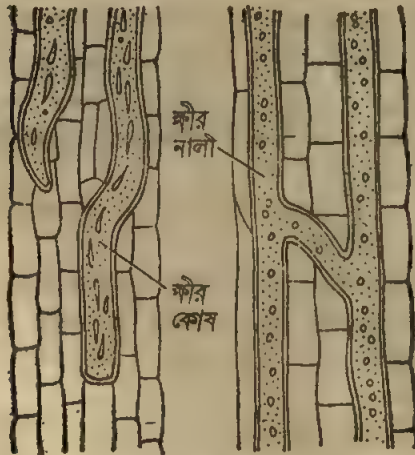 ক্ষীর
নালী
ক্ষীর
কোষ